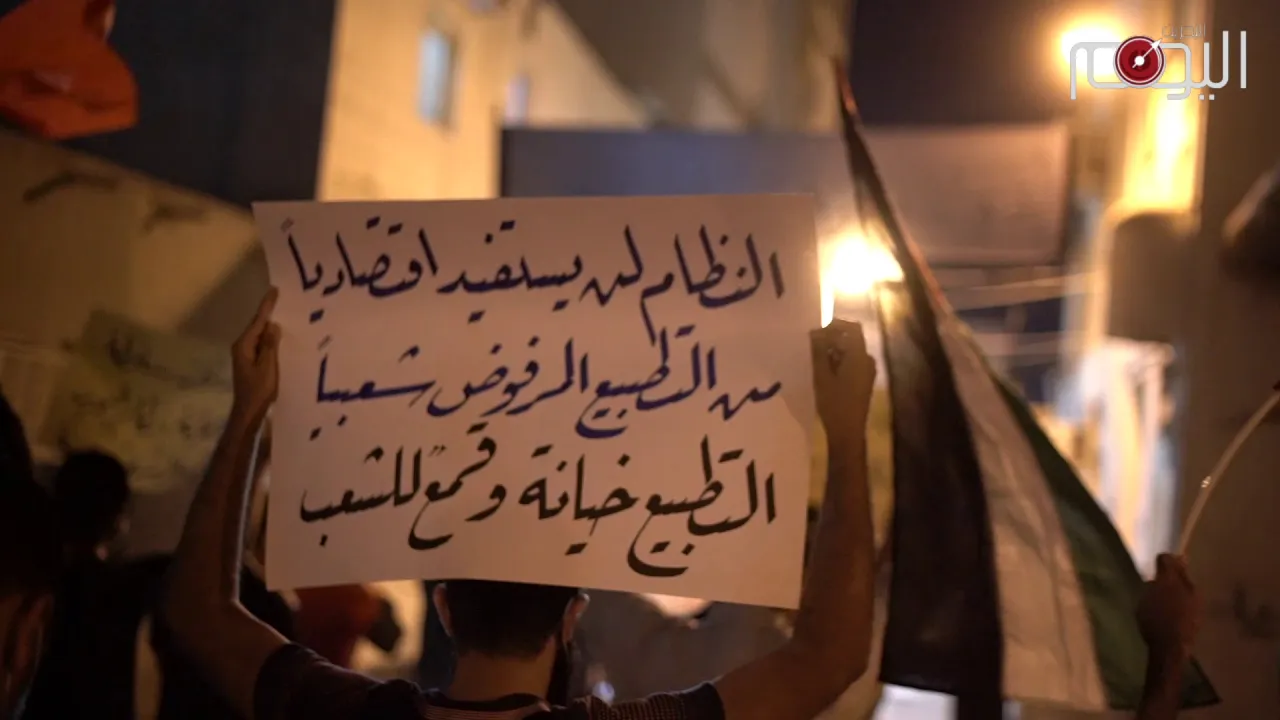 البحرين
اليوم
النظام لن يستفيد اقتصادياً
من التطبيع المرفوض شعبياً
التطبيع خيانة وقمعٌ للشعب